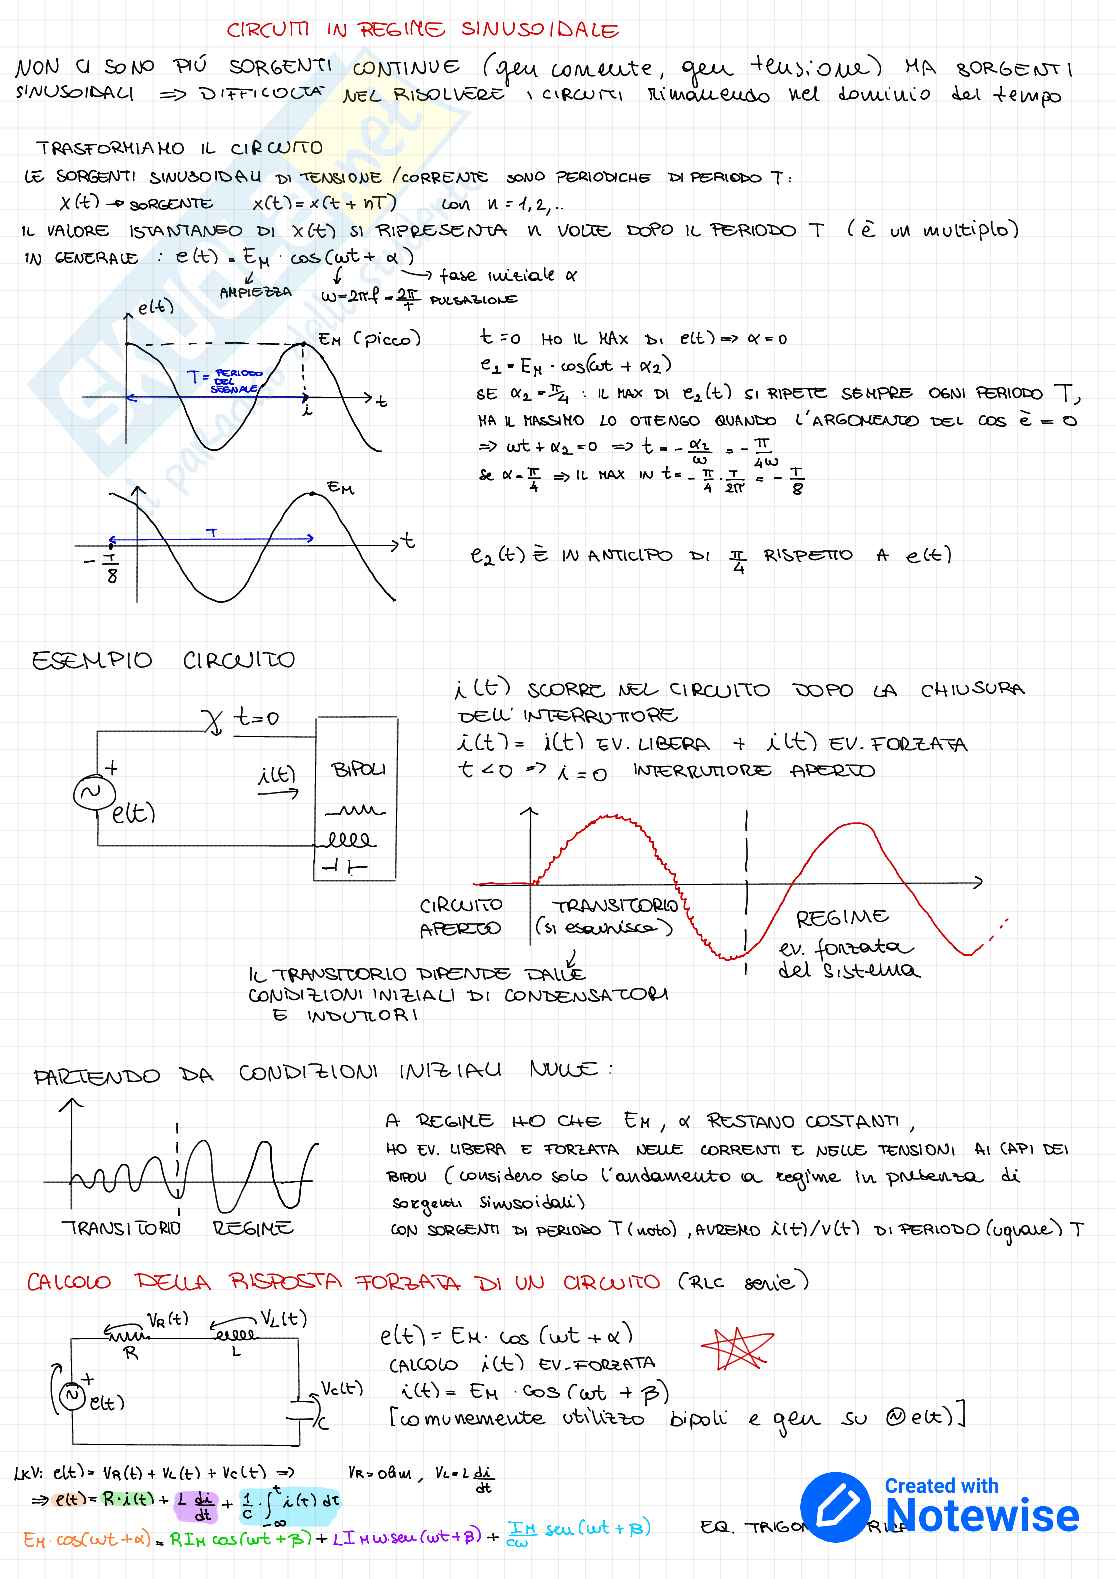 CIRCUITI IN REGIME SINUSOIDALE
NON CI SONO PIÚ SORGENTI CONTINUE (gen corrente, gen tensione) MA SORGENTI
SINUSOIDALI => DIFFICOLTA' NEL RISOLVERE i CIRCUITI rimanendo nel dominio del tempo
TRASFORMIAMO IL CIRCUITO
LE SORGENTI SINUSOIDALI DI TENSIONE/CORRENTE SONO PERIODICHE DI PERIODO T:
x(t) → SORGENTE x(t)=x(t+nT) con n=1,2,..
IL VALORE ISTANTANEO DI x(t) SI RIPRESENTA n VOLTE DOPO IL PERIODO T (è un multiplo)
IN GENERALE : e(t) = EM · cos(ωt + α)
→ fase iniziale α
AMPIEZZA ω=2πf=2π/T PULSAZIONE
e(t)
EM (picco)
T= PERIODO DEL SEGNALE
i
t
t=0 HO IL MAX DI e(t) => α=0
e1=EM·cos(ωt + α2)
SE α2=π/4 : IL MAX DI e2(t) SI RIPETE SEMPRE OGNI PERIODO T,
MA IL MASSIMO LO OTTENGO QUANDO L'ARGOMENTO DEL COS è = 0
=> ωt + α2=0 => t = -α2/ω = -π/4ω
Se α=π/4 => IL MAX IN t= -π/4 · T/2π = -T/8
EM
T
t
-T/8
e2(t) È IN ANTICIPO DI π/4 RISPETTO A e(t)
ESEMPIO CIRCUITO
t=0
i(t)
BIPOLI
+
e(t)
i(t) SCORRE NEL CIRCUITO DOPO LA CHIUSURA
DELL'INTERRUTTORE
i(t)= i(t) EV. LIBERA + i(t) EV. FORZATA
t<0 => i=0 INTERRUTTORE APERTO
CIRCUITO
APERTO
TRANSITORIO
(si esaurisce)
REGIME
ev. forzata
del sistema
IL TRANSITORIO DIPENDE DALLE
CONDIZIONI INIZIALI DI CONDENSATORI
E INDUTTORI
PARTENDO DA CONDIZIONI INIZIALI NULLE:
TRANSITORIO REGIME
A REGIME HO CHE EM, α RESTANO COSTANTI,
HO EV. LIBERA E FORZATA NELLE CORRENTI E NELLE TENSIONI AI CAPI DEI
BIPOLI (considero solo l'andamento a regime in presenza di
sorgenti sinusoidali)
CON SORGENTI DI PERIODO T (noto), AVREMO i(t)/v(t) DI PERIODO (uguale) T
CALCOLO DELLA RISPOSTA FORZATA DI UN CIRCUITO (RLC serie)
VR(t) VL(t)
R L
+
e(t)
Vc(t)
C
e(t)= EM· cos (ωt + α)
CALCOLO i(t) EV. FORZATA
i(t)= EM · cos (ωt + β)
[comunemente utilizzo bipoli e gen su e(t)]
LKV: e(t)= VR(t) + VL(t) + Vc(t) => VR=ohm, VL=L di/dt
=> e(t)= R·i(t) + L di/dt + 1/C · ∫ t -∞ i(τ) dτ
EM · cos(ωt+α) = RIM cos(ωt+β) + LIMω·sen(ωt+β) + IM/Cω sen(ωt + β)
EQ.
Created with
Notewise